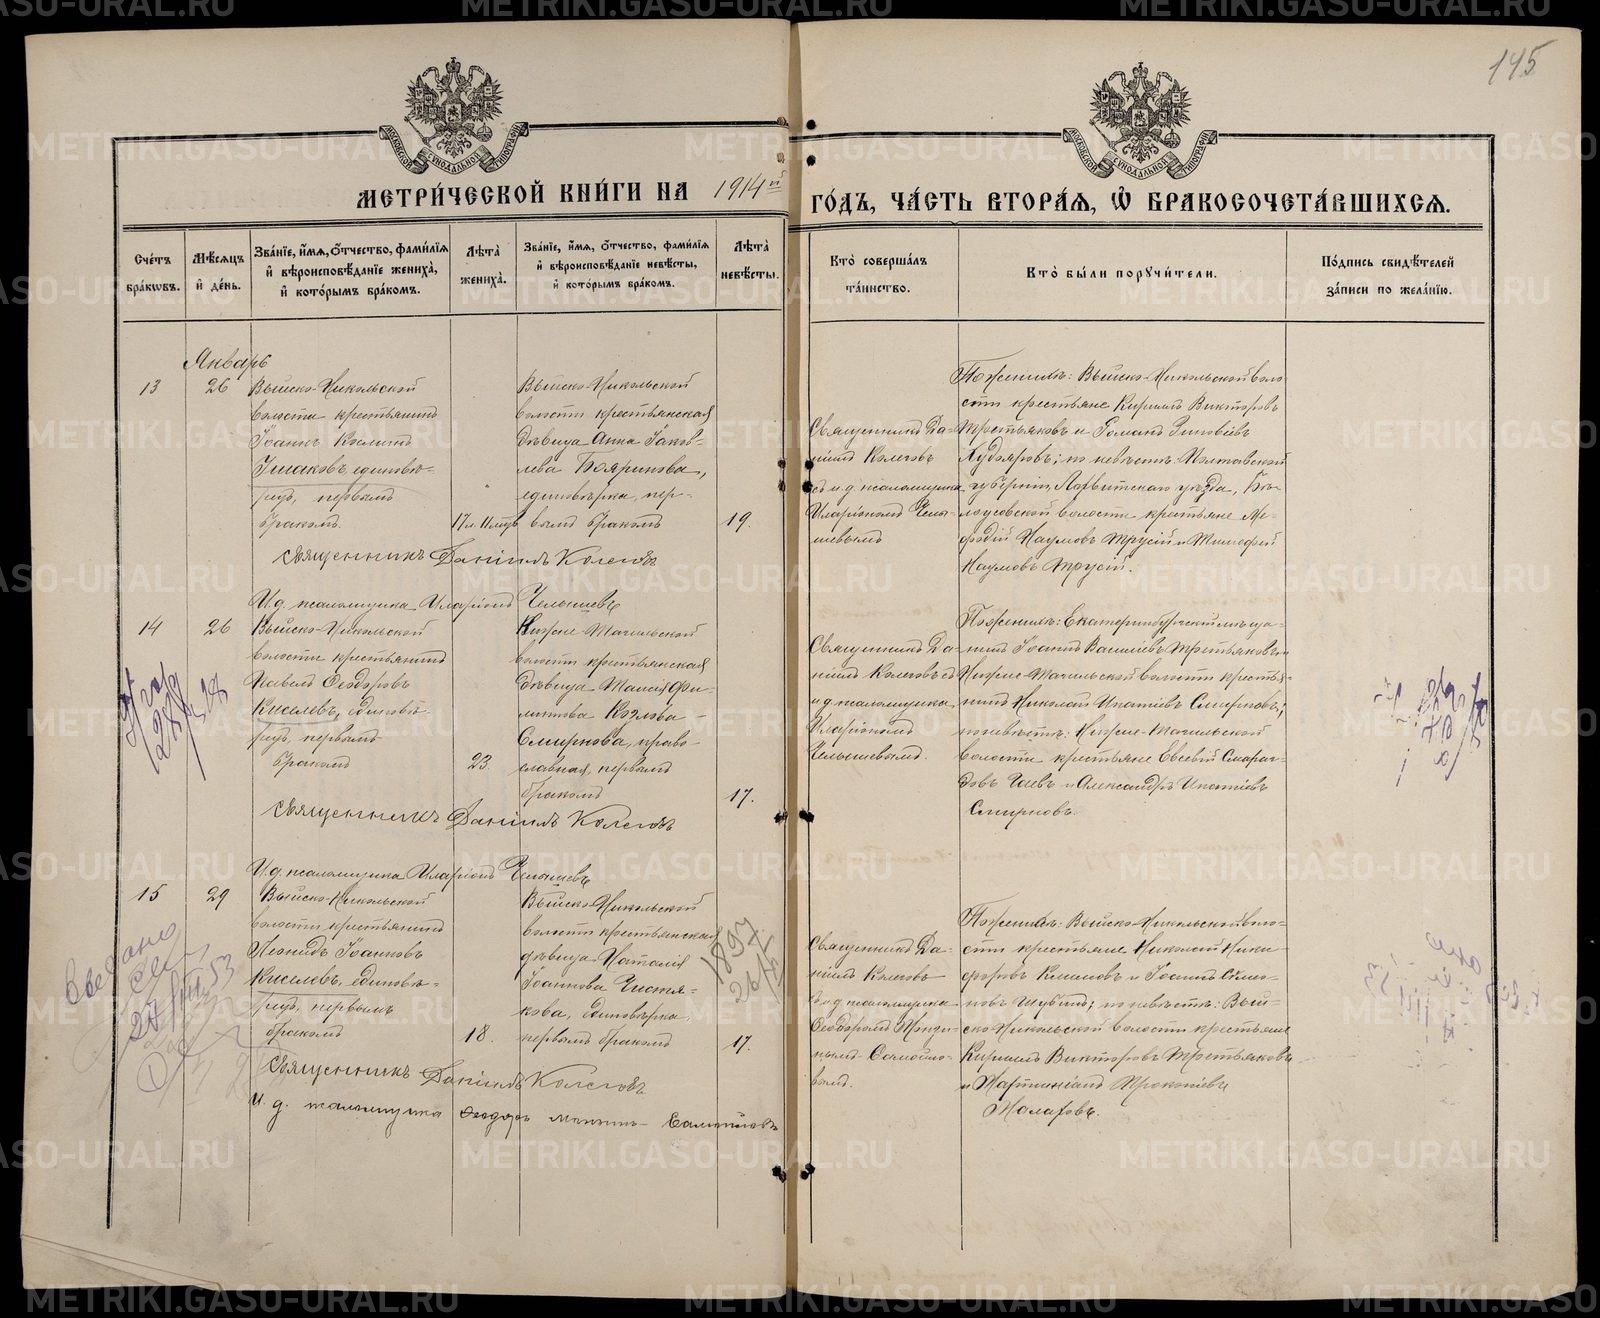 145
МЕТРИ́ЧЕСКОЙ КНИ́ГИ НА 1914 ГО́ДЪ, ЧА́СТЬ ВТОРА́Я, Ѽ БРАКОСОЧЕТА́ВШИХСЯ.
Сче́тъ бра́кѡвъ.
Мѣ́сяцъ и҆ де́нь.
Зва́ніе, и҆́мя, ѻ҆́тчество, фами́лїя и҆ вѣроисповѣ́даніе жениха̀, и҆ кото́рымъ бра́комъ.
Лѣ́та жениха̀.
Зва́ніе, и҆́мя, ѻ҆́тчество, фами́лїя и҆ вѣроисповѣ́даніе невѣ́сты, и҆ кото́рымъ бра́комъ.
Лѣ́та невѣ́сты.
Кто̀ соверша́лъ та́инство.
Кто̀ бы́ли порꙋчи́тели.
По́дпись свидѣ́телей за́писи по жела́нїю.
Январь
13
26
Выйско-Никольской
волости крестьянинъ
Іоаннъ
единовѣ-
рецъ, первымъ
бракомъ
17 л.
Выйско-Никольской
волости крестьянская
дѣвица Анна Іаков-
лева Бояринова,
единовѣрка, пер-
вымъ бракомъ
19.
Священникъ Да-
ніилъ Колеговъ
съ и. д. псаломщика
Иларіономъ Челы-
шевымъ
По женихѣ: Выйско-Никольской воло-
сти крестьяне Кириллъ Викторовъ
Третьяковъ и Романъ Зиновіевъ
Худояровъ; по невѣстѣ: Полтавской
губерніи, уѣзда, Бѣ-
лоусовской волости крестьяне Ме-
фодій Наумовъ Трусій и Тимофей
Наумовъ Трусій.
Священникъ Даніилъ Колеговъ
И. д. псаломщика Иларіонъ Челышевъ
14
26
Выйско-Никольской
волости крестьянинъ
Павелъ Ѳеодоровъ
Киселевъ, единовѣ-
рецъ, первымъ
бракомъ
23.
Нижне-Тагильской
волости крестьянская
дѣвица Таисія Фи-
липпова Козлова -
Смирнова, право-
славная, первымъ
бракомъ
17.
Священникъ Да-
ніилъ Колеговъ съ
и. д. псаломщика
Иларіономъ
Челышевымъ.
По женихѣ: Екатеринбургскій мѣща-
нинъ Іоаннъ Василіевъ Третьяковъ и
Нижне-Тагильской волости крестья-
нинъ Николай Ипатіевъ Смирновъ;
по невѣстѣ: Нижне-Тагильской
волости крестьяне Евсевій Смараг-
довъ Гаевъ и Александръ Ипатіевъ
Смирновъ.
Священникъ Даніилъ Колеговъ
И. д. псаломщика Иларіонъ Челышевъ
15
29
Выйско-Никольской
волости крестьянинъ
Леонидъ Іоанновъ
Киселевъ, единовѣ-
рецъ, первымъ
бракомъ
18.
Выйско-Никольской
волости крестьянская
дѣвица Наталія
Іоаннова Чистя-
кова, единовѣрка,
первымъ бракомъ
17.
1897
Священникъ Да-
ніилъ Колеговъ
съ и. д. псаломщика
По женихѣ: Выйско-Никольской воло-
сти крестьяне Николай Ники-
форовъ Климовъ и Іоаннъ Симо-
новъ Шубинъ; по невѣстѣ: Вый-
ско-Никольской волости крестьяне
Кириллъ Викторовъ Третьяковъ
и Мартиніанъ Прокопіевъ
Малаховъ.
Священникъ Даніилъ Колеговъ
И. д. псаломщика Ѳеодоръ
METRIKI.GASO-URAL.RU